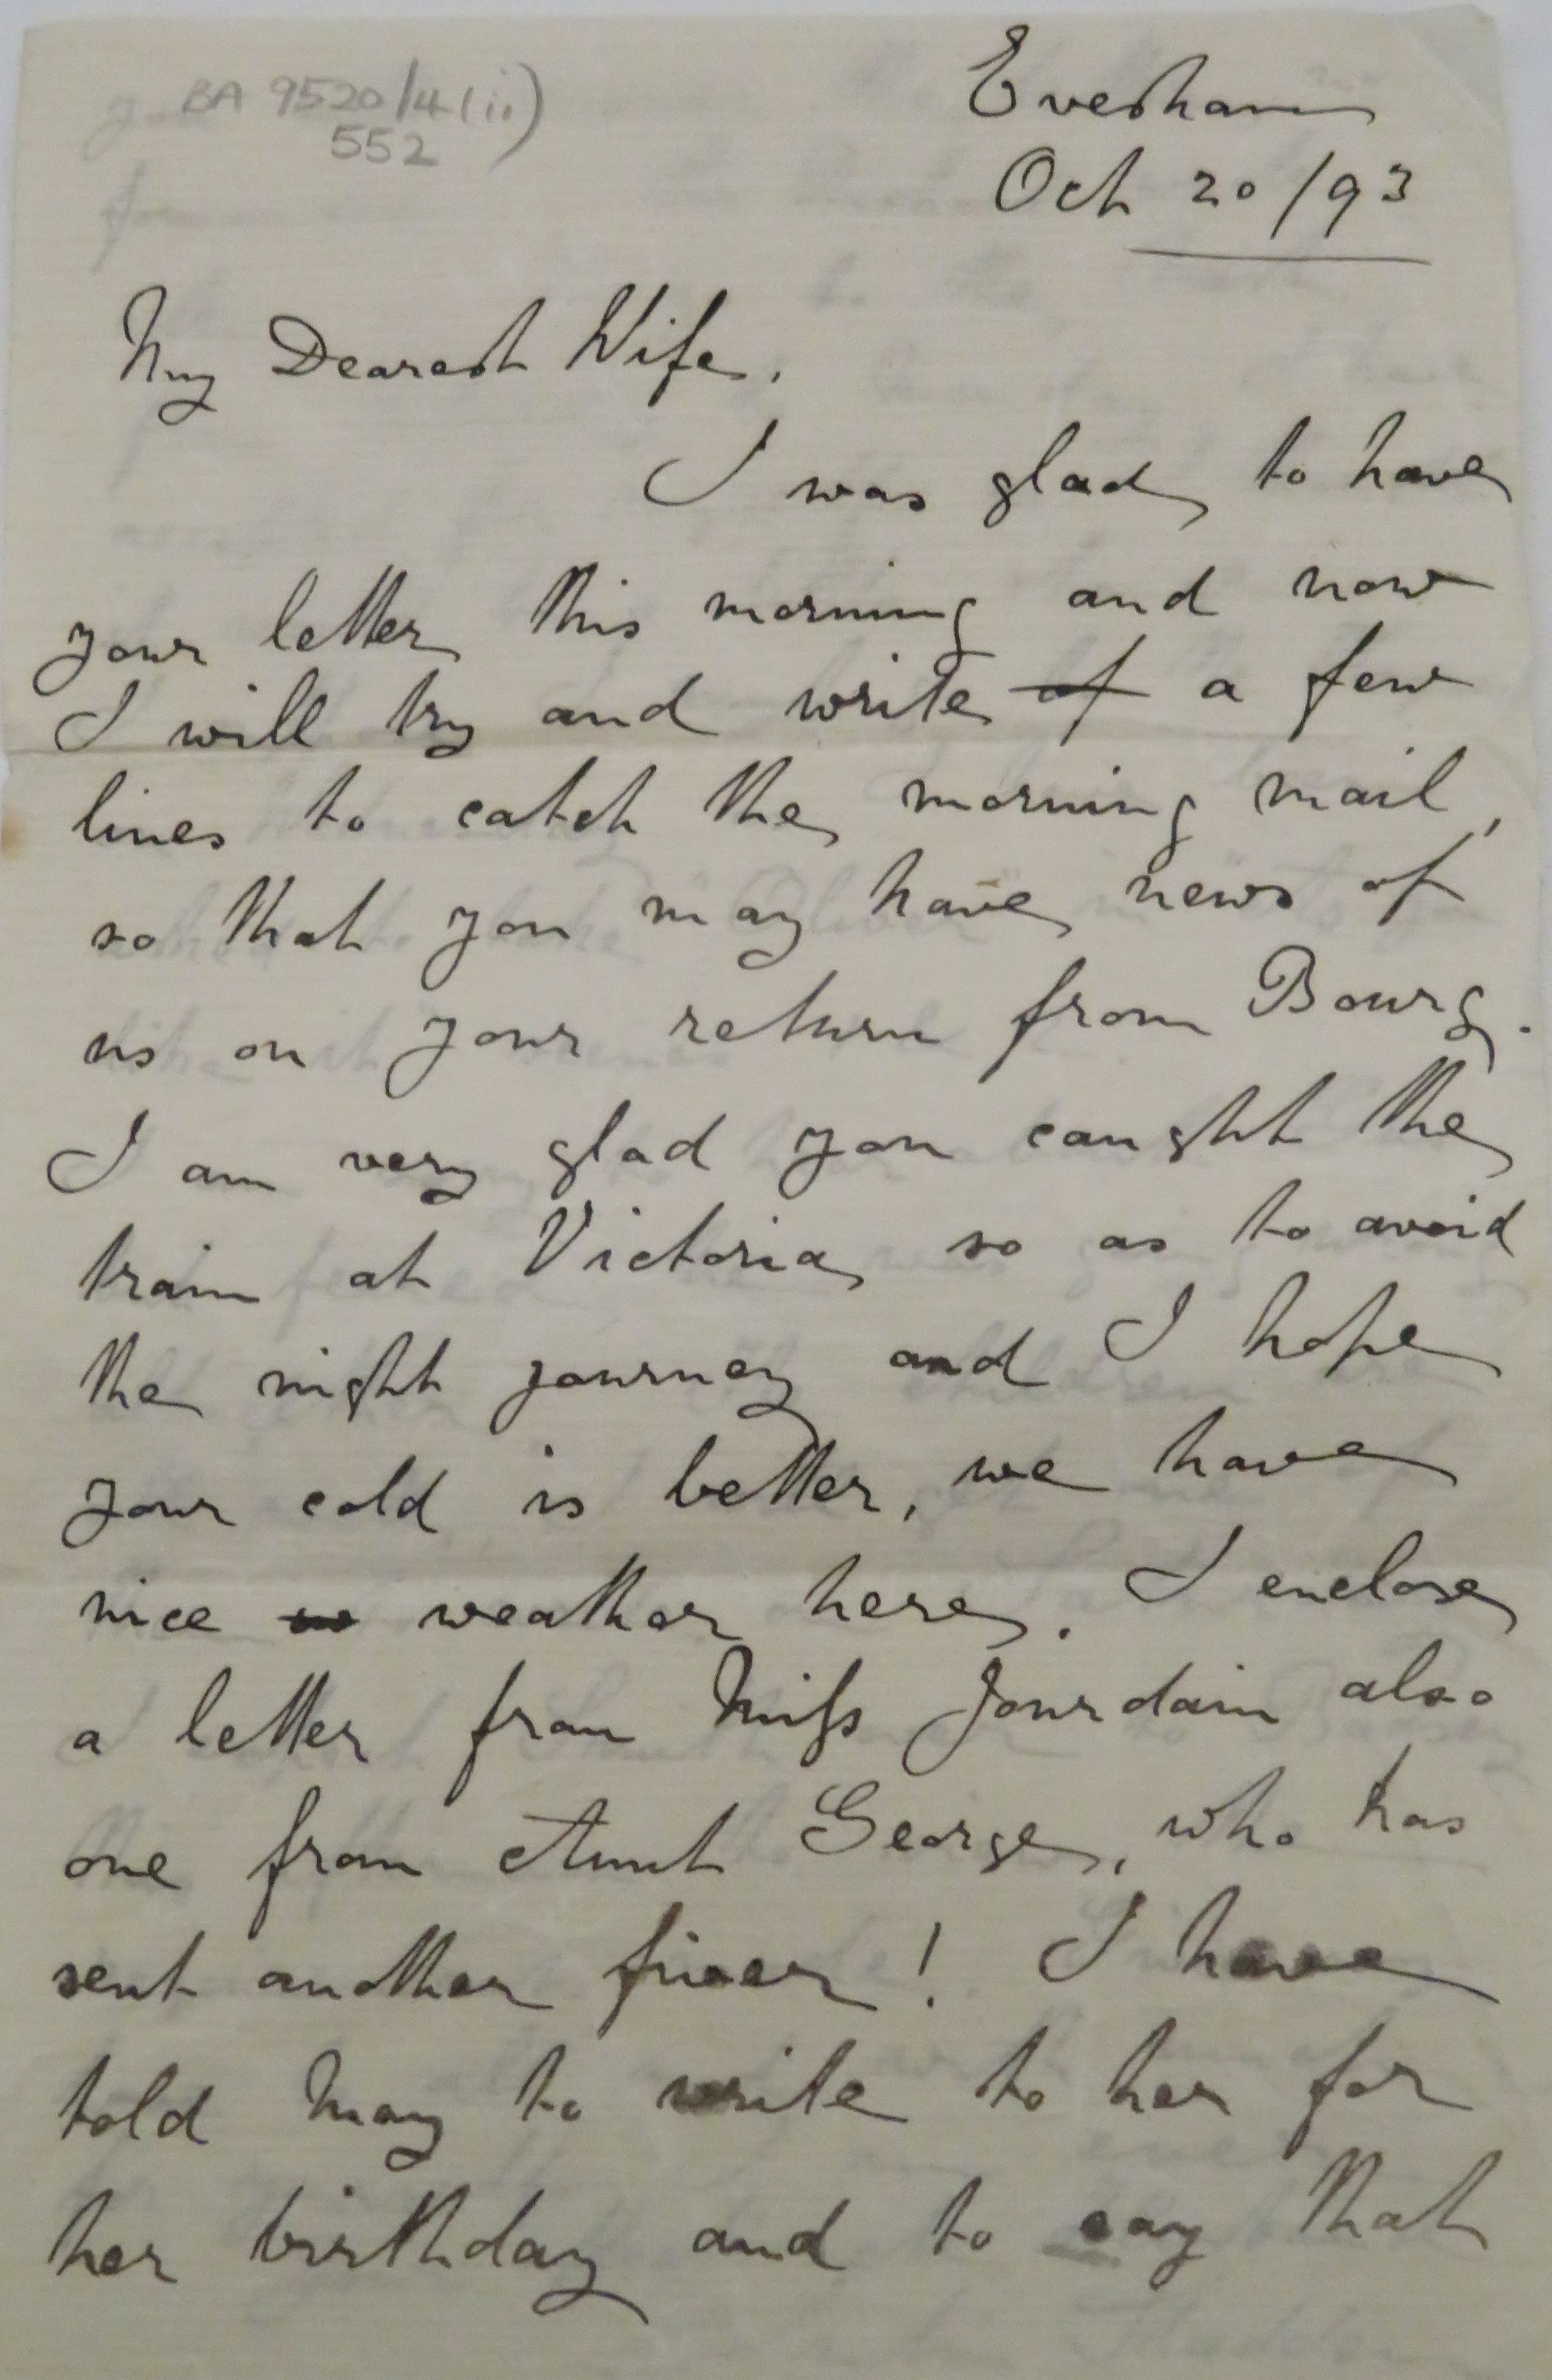 BA 9520/4(ii)
552
Evesham
Oct 20/93
My Dearest Wife,
I was glad to have
your letter this morning and now
I will try and write of a few
lines to catch the morning mail,
so that you may have news of
us on your return from Bourg.
I am very glad you caught the
train at Victoria so as to avoid
the night journey and I hope
your cold is better, we have
nice w weather here. I enclose
a letter from Miss Jourdain also
one from Aunt George, who has
sent another fiver! I have
told May to write to her for
her birthday and to say that